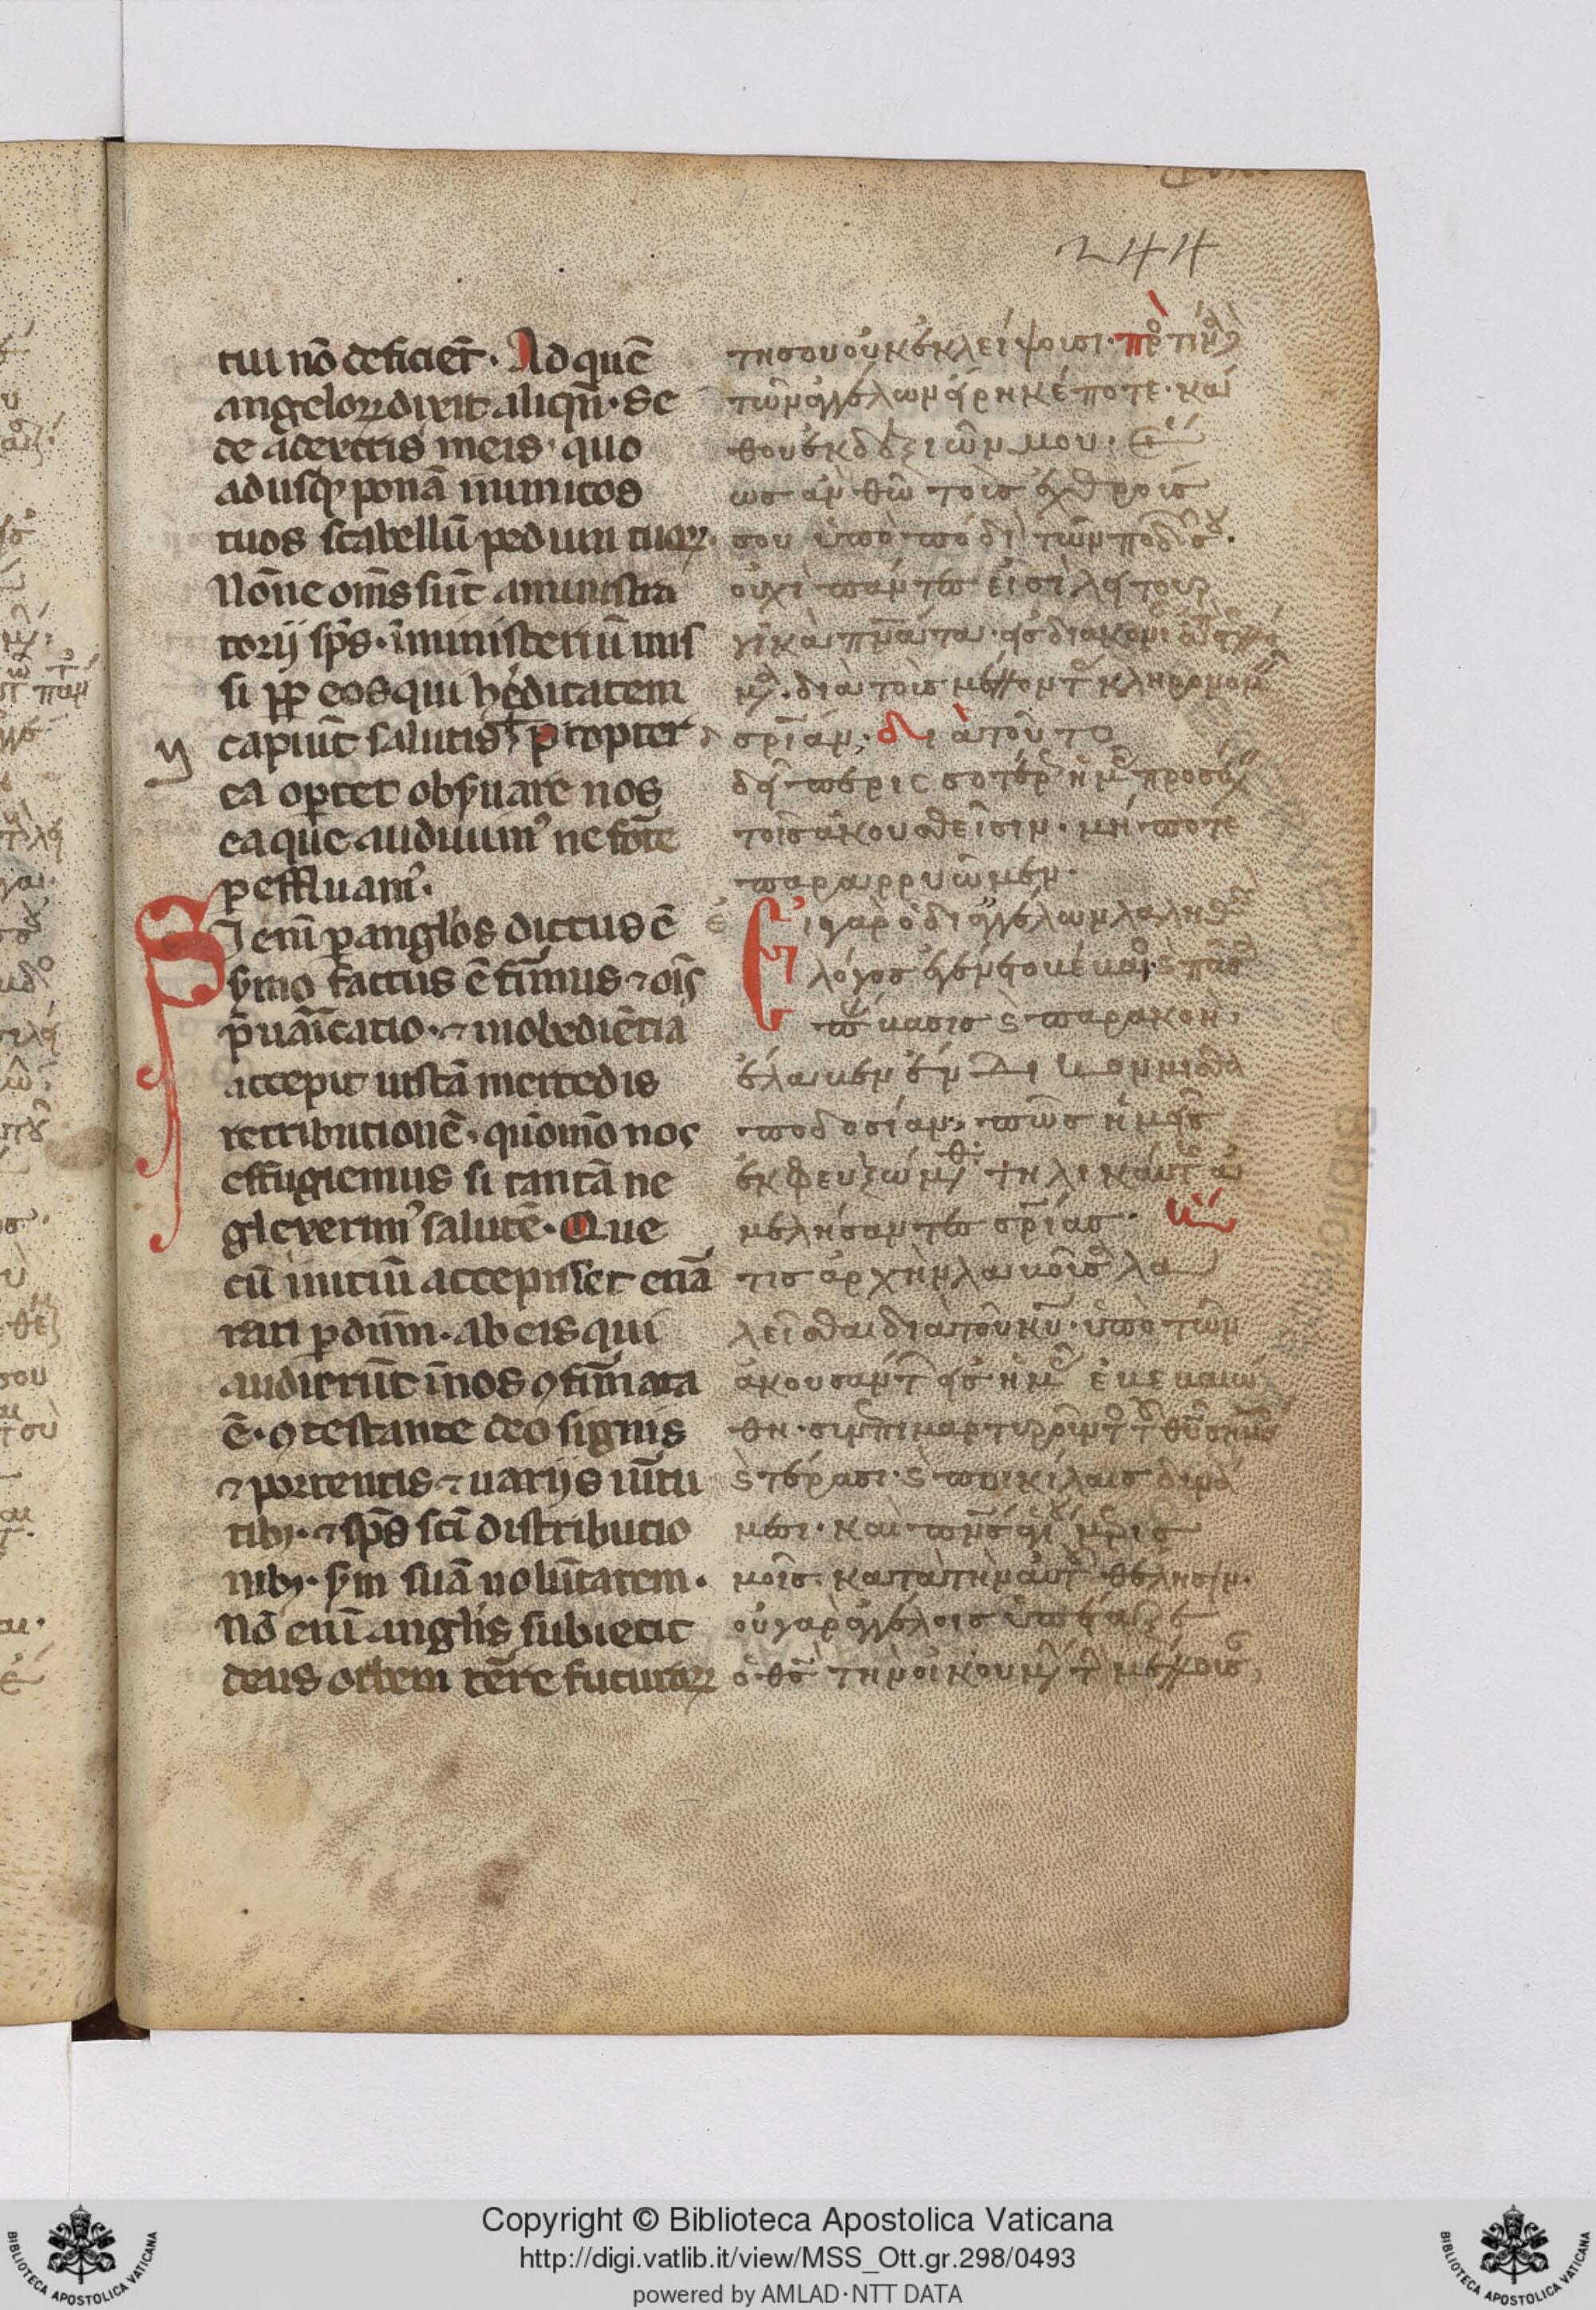 244
tui nō deficiēt. Ad quē
angeloꝝ dixit aliqn̄. Se
de a dextris meis. quo
adusq; ponā inimicos
tuos scabellū pedum tuoꝝ.
Nōne om̄s sūt aministra
torij sp̄s. ī ministeriū mis
si ꝓp eos qui h'editatem
capiūt salutis. ꝓpter
ea oportet obs'uare nos
ea que audiuim' ne forte
peffluam'.
Si eni ꝑ angl'os dictus ē
s'mo factus ē firmus ⁊ oīs
p̄uaīcatio. ⁊ inobediētia
accepit iustā mercedis
retributionē. quōmo nos
effugiemus si tantā ne
glexerim' salutē. Que
cū initiū accepisset enā
rari ꝑ dn̄m. ab eis qui
audierūt ī nos ꝯfirmata
ē. ꝯtestante deo signis
⁊ portentis. ⁊ uarijs uītu
tib;. ⁊ sp̄s sc̄i distributio
nib;. s'm suā uolūtatem.
Nō enī angl'is subiecit
deus orbem terre futuroꝝ
της σου οὐκ ἐκλείψουσι. πρὸ τίνα
τῶν ἀγγέλων εἴρηκέ ποτε. καί
θου ἐκ δεξιῶν μου. ἕ
ως ἂν θῶ τοὺς ἐχθρούς
σου ὑποπόδι τῶν ποδῶν σου.
οὐχὶ πάντες εἰσὶ λειτουρ
γικὰ πν̄ατα. εἰς διακονι
διὰ τοὺς μέλλοντ κληρονομ
σρ̄ίαν; διὰ τοῦτο
δεῖ περισσοτέρ ἡμ προσέχ
τοῖς ἀκουσθεῖσιν. μή ποτε
παραρρυῶμεν.
Εἰ γὰρ ὁ δι ἀγγέλων λαληθ
λόγος ἐγένετο βέβαιος ϛ πᾶσ
παράβασις ϛ παρακοὴ
ἔλαβεν ἔνδικον μισθα
ποδοσίαν, πῶς ἡμεῖς
ἐκφευξώμεθα τηλικαύτ ἀ
μελήσαντες σρ̄ίας. ἥ
τις ἀρχὴν λαβοῦσα λα
λεῖσθαι διὰ τοῦ κῡ. ὑπὸ τῶν
ἀκουσάντ εἰς ἡμ ἐβεβαιώ
θη. συνεπιμαρτυροῦντο τ θῡ σημείο
ϛ τέρασι. ϛ ποικίλαις δυνά
μεσι. καὶ πν̄ς ἁγί μερισ
μοῖς. κατὰ τὴν αὐτ θέλησιν.
οὐ γὰρ ἀγγέλοις ὑπέταξε
ὁ θς̄ τὴν οἰκουμ τ μέλλουσ
Copyright © Biblioteca Apostolica Vaticana
http://digi.vatlib.it/view/MSS_Ott.gr.298/0493
powered by AMLAD·NTT DATA
BIBLIOTECA APOSTOLICA VATICANA
BIBLIOTECA APOSTOLICA VATICANA